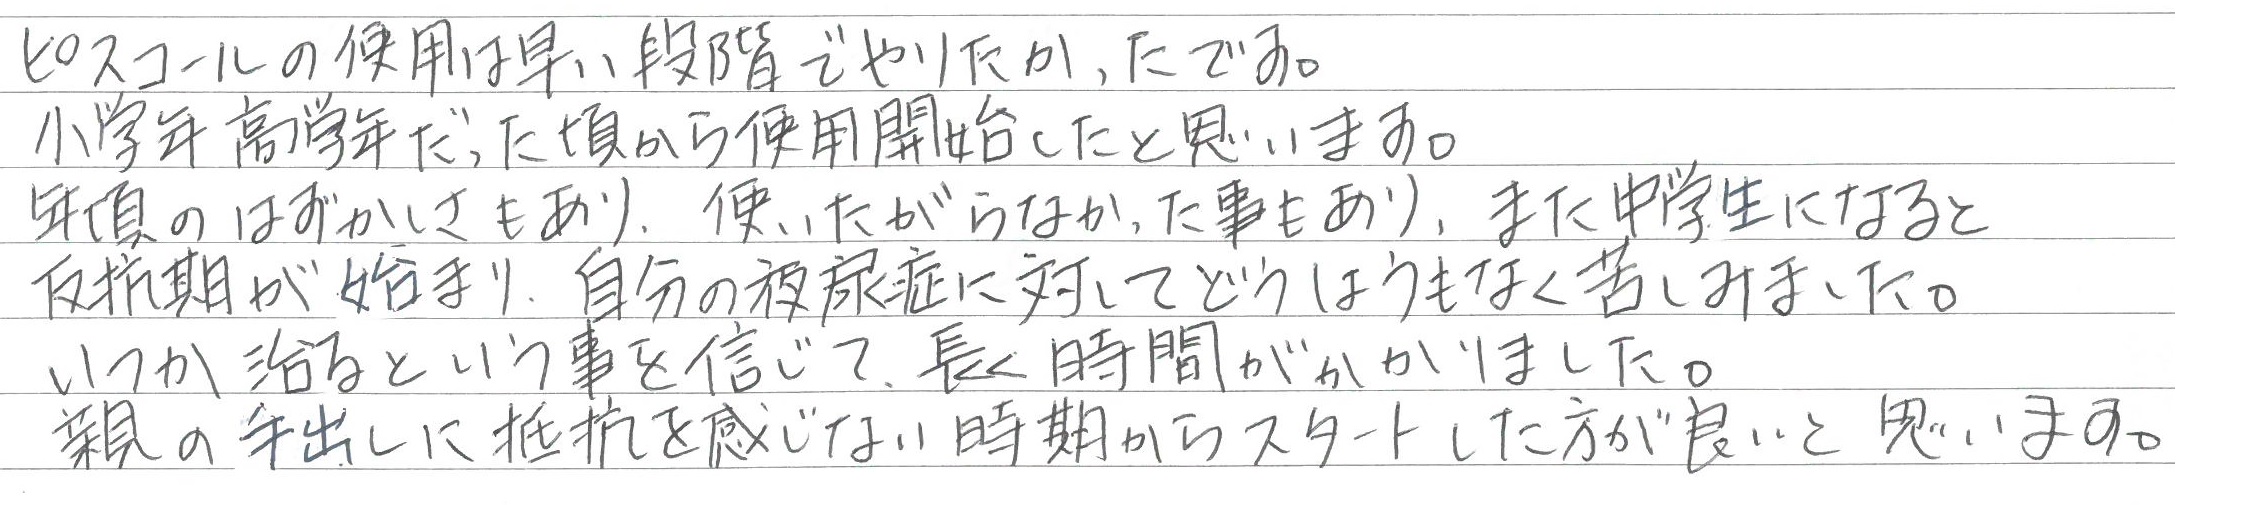 ピスコールの使用は早い段階でやりたかったです。
小学年高学年だった頃から使用開始したと思います。
年頃のはずかしさもあり、使いたがらなかった事もあり、また中学生になると
反抗期が始まり、自分の夜尿症に対してどうしようもなく苦しみました。
いつか治るという事を信じて、長く時間がかかりました。
親の手出しに抵抗を感じない時期からスタートした方が良いと思います。